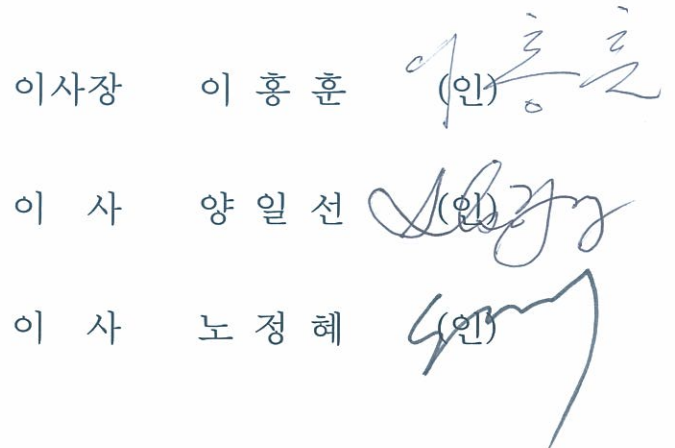 이사장 이 홍 훈 (인) 이홍훈
이 사 양 일 선 (인)
이 사 노 정 혜 (인)